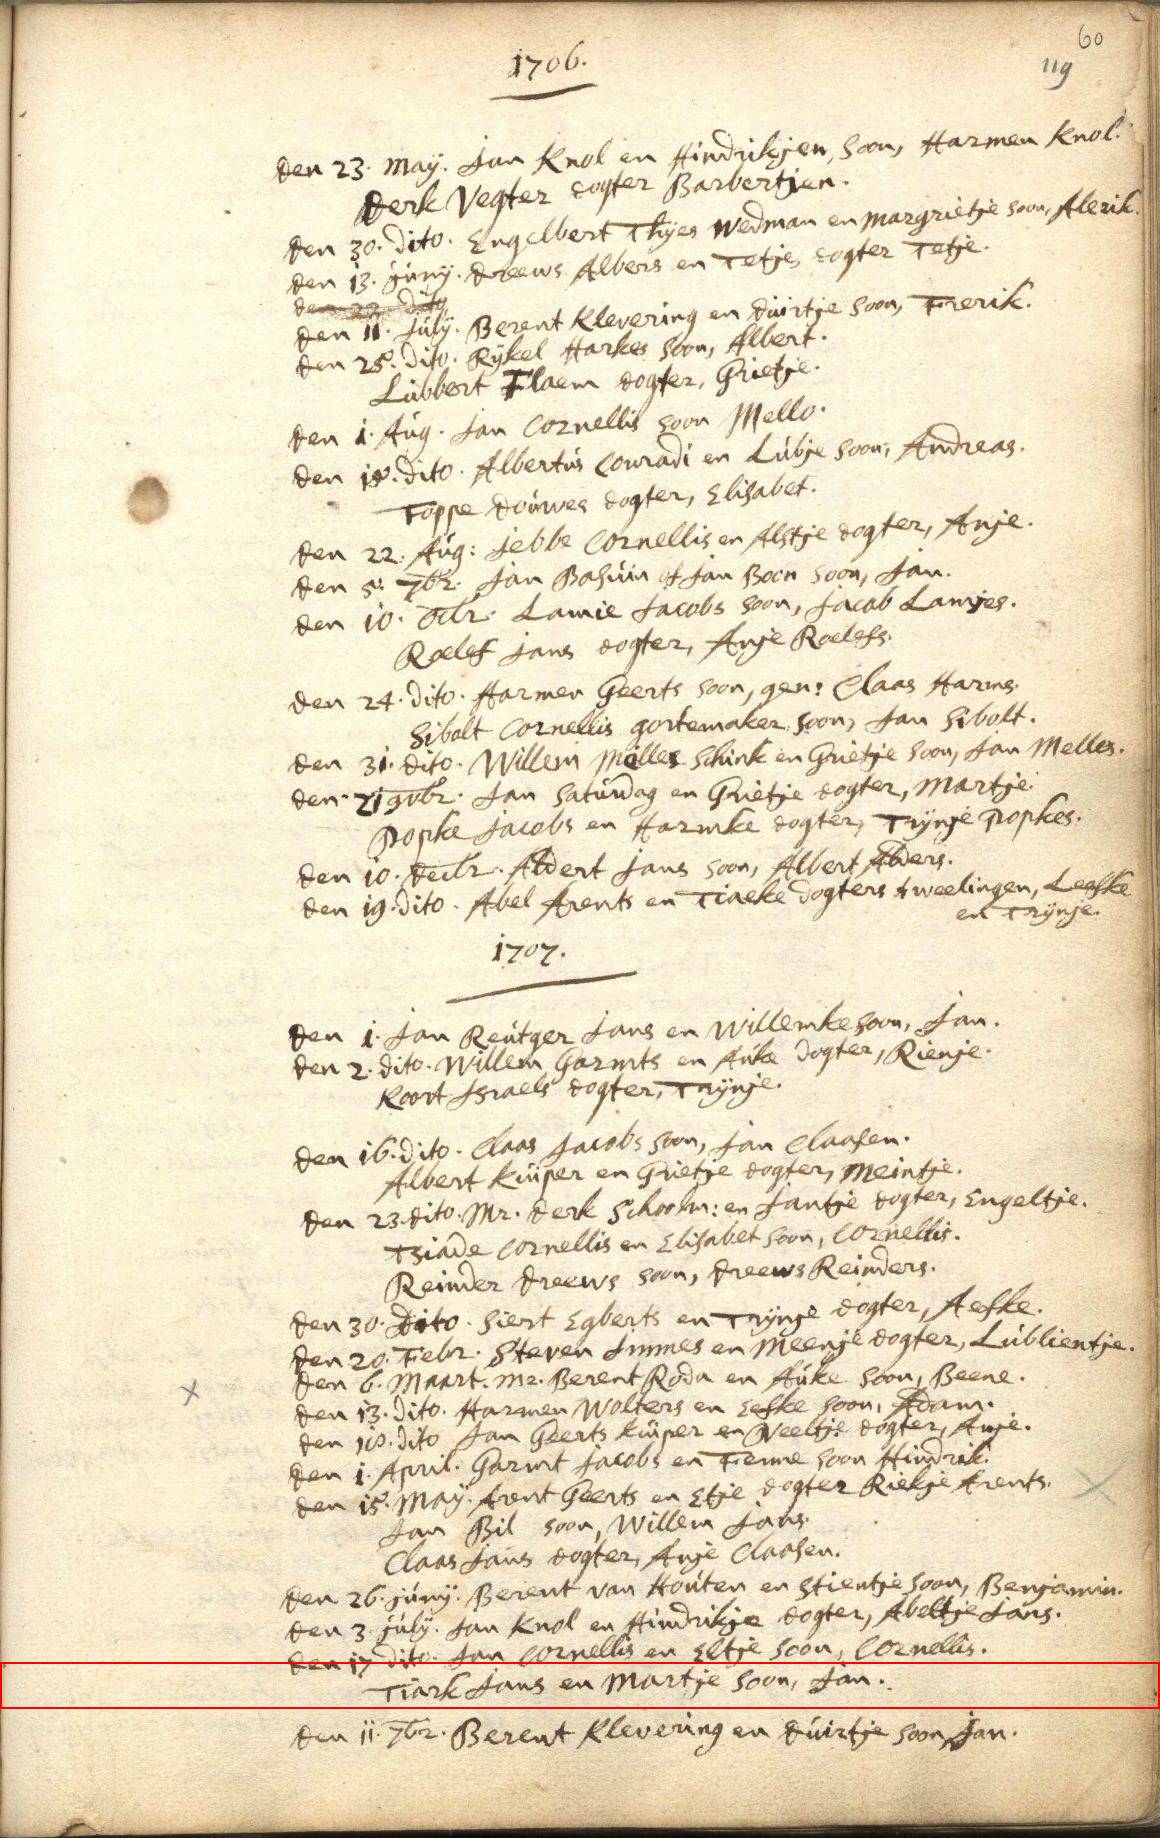 60
119
1706.
den 23. May. Jan Knol en Hindrikjen, soon, Harmen Knol.
Derk Vegter dogter Barbertjen.
den 30. dito. Engelbert Thijes Wedman en Margrietje soon, Alerik.
den 13. Junij. Dreews Albers en Tetje, dogter Tetje.
den 22 dito
den 11. July. Berent Klevering en duirtje soon, Frerik.
den 25. dito. Rijkel Harkes soon, Albert.
Lubbert Flaem dogter, Grietje.
den 1. Aug. Jan Cornellis soon Mello.
den 18. dito. Albertus Conradi en Lubje soon, Andreas.
Foppe Douwes dogter, Elisabet.
den 22. Aug: Jebbe Cornellis en Alstje dogter, Anje.
den 5. 7br. Jan Basuin of Jan Boon soon, Jan.
den 10. Octr. Lamie Jacobs soon, Jacob Lamjes.
Roelef Jans dogter, Anje Roelefs.
den 24. dito. Harmen Geerts soon, gen: Claas Harms.
Sibolt Cornellis gortemaker soon, Jan Sibolt.
den 31. dito. Willem Melles Schink en Grietje soon, Jan Melles.
den 21 9vbr. Jan Saturdag en Grietje dogter, Martje.
Popke Jacobs en Harmke dogter, Trijnje Popkes.
den 10. decbr. Aldert Jans soon, Albert Alders.
den 19. dito. Abel Arents en Tiaeke dogters tweelingen, Leefke
en Trijnje.
1707.
den 1. Jan Reutger Jans en Willemke soon, Jan.
den 2. dito. Willem Garmts en Auke dogter, Rienje.
Koort Israels dogter, Trijnje.
den 16. dito. Claas Jacobs soon, Jan Claasen.
Albert Kuiper en Grietje dogter, Meintje.
den 23. dito. Mr. Derk Schoolm: en Jantje dogter, Engeltje.
Tziade Cornellis en Elisabet soon, Cornellis.
Reinder Dreews soon, Dreews Reinders.
den 30. Dito. Siert Egberts en Trijnje dogter, Aefke.
den 20. Febr. Steven Immes en Meenje dogter, Lublientje.
den 6. Maart. Mr. Berent Roda en Auke soon, Beene.
den 13. dito. Harmen Wolters en Eefke soon, Adam.
den 18. dito Jan Geerts Kuiper en Peeltje dogter, Anje.
den 1. April. Garmt Jacobs en Fenne soon Hindrik.
den 15. May. Arent Geerts en Etje dogter Riekje Arents.
Jan Bil soon, Willem Jans.
Claas Jans dogter, Anje Claasen.
den 26. Junij. Berent van Houten en Stientje soon, Benjamin.
den 3. July. Jan Knol en Hindrikje dogter, Abeltje Jans.
den 17 dito. Jan Cornellis en Eltje soon, Cornellis.
Tiark Jans en Martje soon, Jan.
den 11. 7br. Berent Klevering en duirtje soon, Jan.